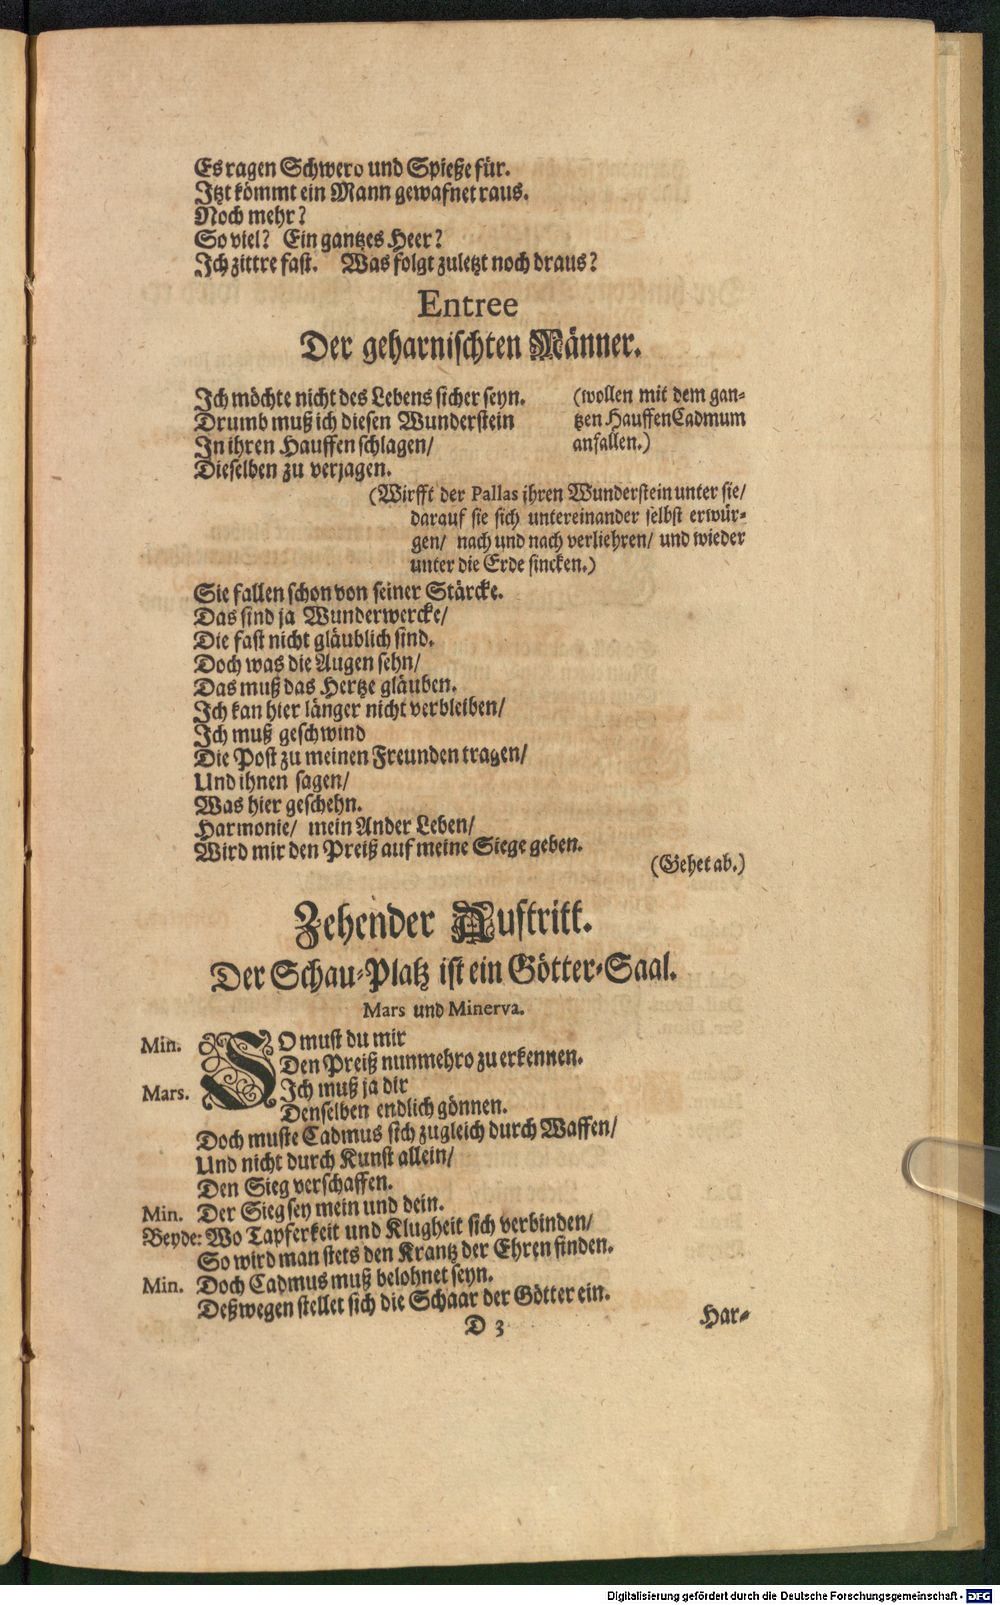 Es ragen Schwero und Spieße für.
Itzt kömmt ein Mann gewafnet raus.
Noch mehr?
So viel? Ein gantzes Heer?
Ich zittre fast. Was folgt zuletzt noch draus?
Entree
Der geharnischten Männer.
Ich möchte nicht des Lebens sicher seyn.
Drumb muß ich diesen Wunderstein
In ihren Hauffen schlagen/
Dieselben zu verjagen.
(wollen mit dem gan-
tzen Hauffen Cadmum
anfallen.)
(Wirfft der Pallas ihren Wunderstein unter sie/
darauf sie sich untereinander selbst erwür-
gen/ nach und nach verliehren/ und wieder
unter die Erde sincken.)
Sie fallen schon von seiner Stärcke.
Das sind ja Wunderwercke/
Die fast nicht gläublich sind.
Doch was die Augen sehn/
Das muß das Hertze gläuben.
Ich kan hier länger nicht verbleiben/
Ich muß geschwind
Die Post zu meinen Freunden tragen/
Und ihnen sagen/
Was hier geschehn.
Harmonie/ mein Ander Leben/
Wird mir den Preiß auf meine Siege geben.
(Gehet ab.)
Zehender Auftritt.
Der Schau-Platz ist ein Götter-Saal.
Mars und Minerva.
Min. SO must du mir
Den Preiß nunmehro zu erkennen.
Mars. Ich muß ja dir
Denselben endlich gönnen.
Doch muste Cadmus sich zugleich durch Waffen/
Und nicht durch Kunst allein/
Den Sieg verschaffen.
Min. Der Sieg sey mein und dein.
Beyde: Wo Tapferkeit und Klugheit sich verbinden/
So wird man stets den Krantz der Ehren finden.
Min. Doch Cadmus muß belohnet seyn.
Deßwegen stellet sich die Schaar der Götter ein.
D 3
Har-
Digitalisierung gefördert durch die Deutsche Forschungsgemeinschaft - DFG